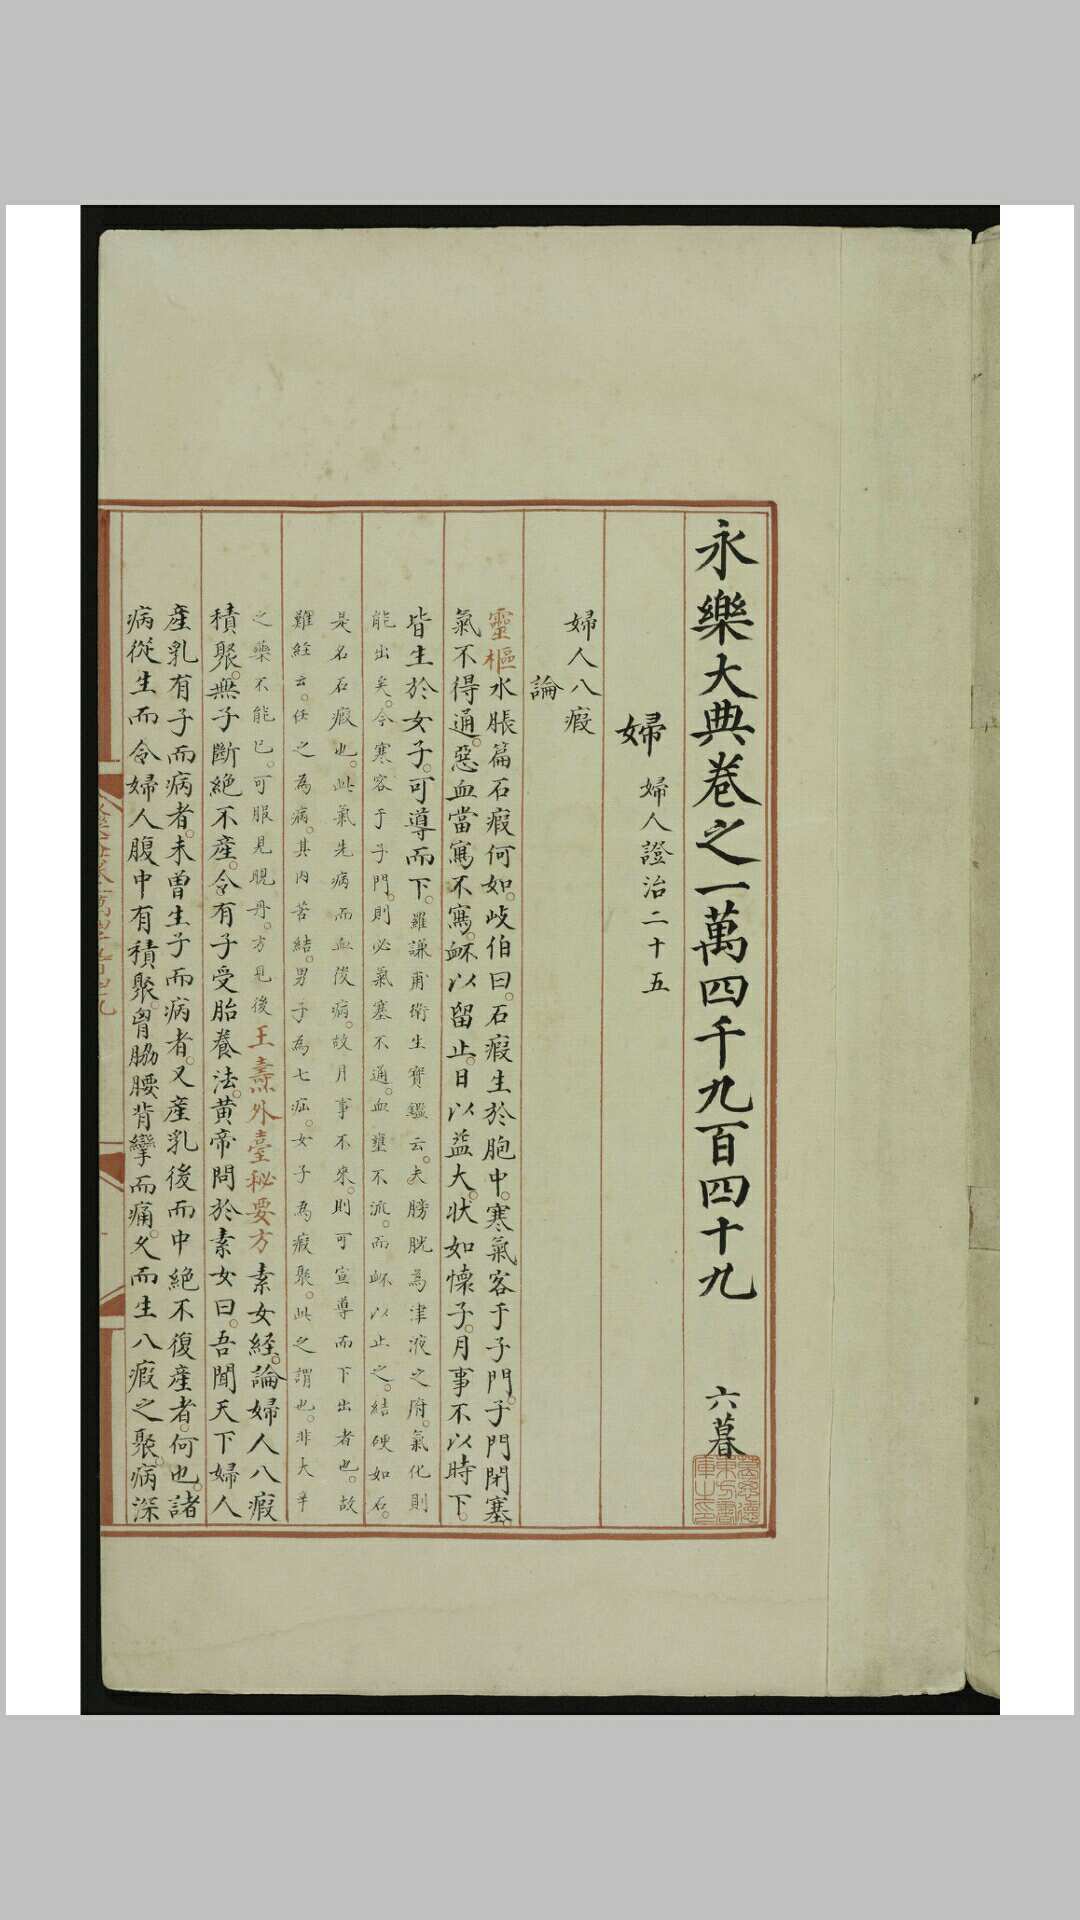 永樂大典卷之一萬四千九百四十九 六暮
婦 婦人證治二十五
婦人八瘕
論
靈樞水脹篇石瘕何如。岐伯曰。石瘕生於胞中。寒氣客于子門。子門閉塞。
氣不得通。惡血當寫不寫。衃以留止。日以益大。狀如懷子。月事不以時下。
皆生於女子。可導而下。羅謙甫衛生寶鑑云。夫膀胱為津液之府。氣化則
能出矣。今寒客于子門。則必氣塞不通。血壅不流。而衃以止之。結硬如石。
是名石瘕也。此氣先病而血後病。故月事不來。則可宣導而下出者也。故
難經云。任之為病。其內苦結。男子為七疝。女子為瘕聚。此之謂也。非大辛
之藥不能已。可服見晛丹。方見後王燾外臺秘要方素女経。論婦人八瘕
積聚。無子斷絕不產。合有子受胎養法。黃帝問於素女曰。吾聞天下婦人
產乳有子而病者。未曾生子而病者。又產乳後而中絕不復產者。何也。諸
病從生而令婦人腹中有積聚。胷脇腰背攣而痛。久而生八瘕之聚。病深